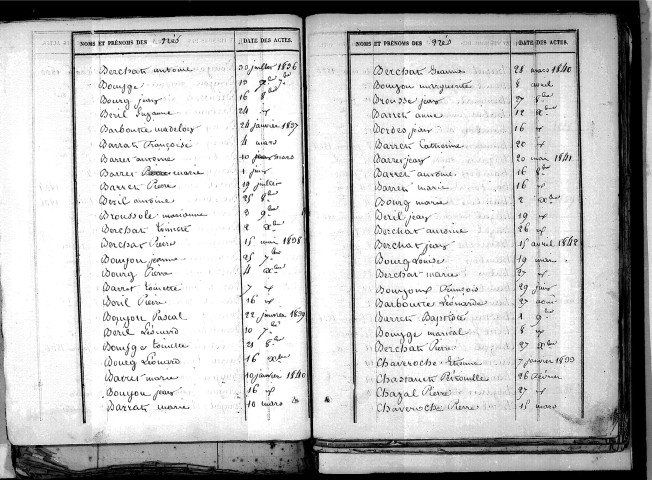 NOMS ET PRÉNOMS DES nés DATE DES ACTES.
Berchat antoine 30 juillet 1836
Bouyge 13 Xbre
Bourg jean 16 8bre
Beril Suzanne 24 x
Barboutie madeloux 24 janvier 1837
Barrat françoise 4 mars
Barret antoine 10 mars
Barret marie 1 juin
Barret Pierre 19 juillet
Beril antoine 25 8bre
Broussole marianne 3 9bre
Berchat toinette 2 Xbre
Berchat Pierre 15 mai 1838
Bouyou jeanne 25 7bre
Bourg Pierre 4 Xbre
Barret toinette 7 x
Beril Pierre 16 x
Bouyou Pascal 22 janvier 1839
Beril Léonard 10 7bre
Bouyge toinette 21 8bre
Bourg Léonard 16 Xbre
Barret marie 10 janvier 1840
Bouyou jean 16 x
Barrat marie 10 mars
NOMS ET PRÉNOMS DES nés DATE DES ACTES.
Berchat Jeanne 28 mars 1840
Bouyou marguerite 8 avril
Brousse jean 27 8bre
Barret anne 12 Xbre
Bordes jean 16 x
Barret Catherine 20 x
Barret jean 20 mars 1841
Barret antoine 16 8bre
Barret marie 16 x
Bourg marie 2 Xbre
Beril jean 19 x
Berchat antoine 26 x
Berchat jean 15 avril 1842
Bourg Louise 19 mai
Berchat marie 27 x
Bouyoux François 29 juin
Barboutie Léonarde 27 août
Barret Baptiste 1 9bre
Bouyge martial 8 x
Berchat Pierre 27 Xbre
Chaveroche Etienne 7 janvier 1833
Chastanet Petronille 26 février
Chazal Pierre 27 x
Chaveroche Pierre 15 mars